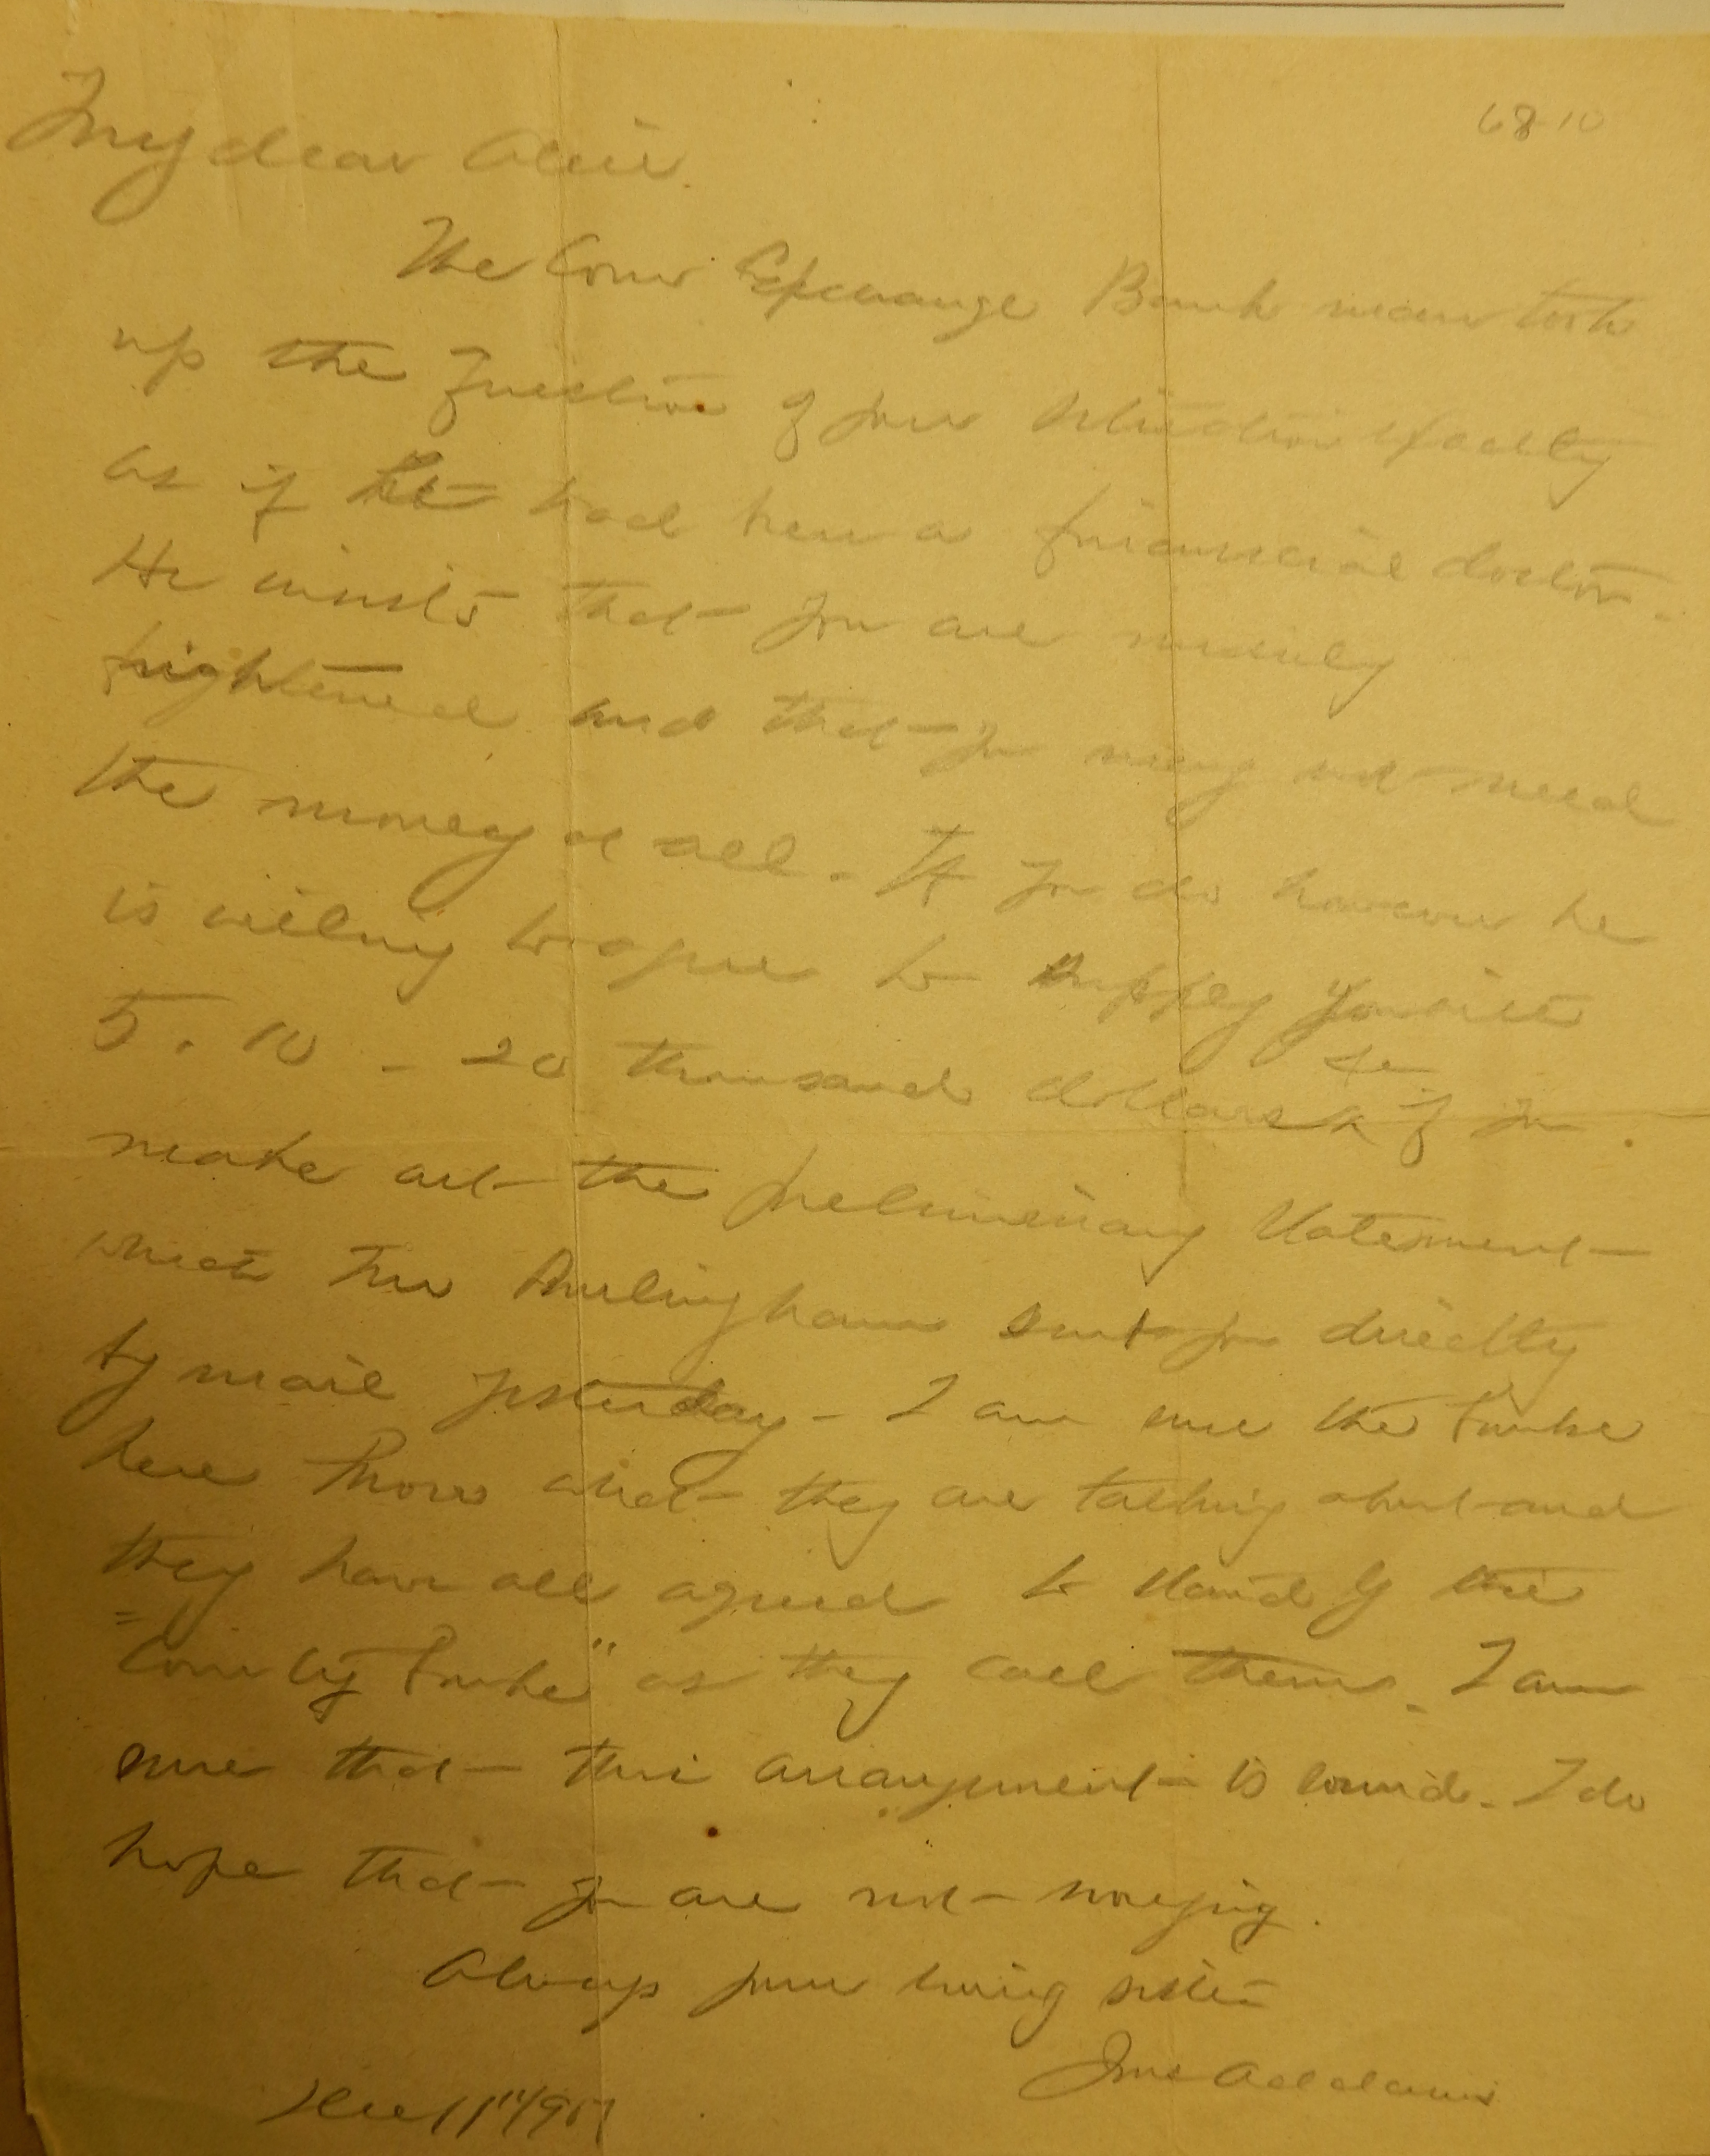 68-10
My dear Alice.
The Corn Exchange Bank man took
up the question of your situation exactly
as if he had been a financial doctor.
He insists that you are merely
frightened and that you may not need
the money at all. If you do however he
is willing to agree to supply you with
5. 10 - 20 thousand dollars if you
make out the preliminary statement
which Mr Hulingham sent you directly
by mail yesterday - I am sure the banks
here know what they are talking about and
they have all agreed to stand by the
"Country Banks" as they call them. I am
sure that this arrangement is sound. I do
hope that you are not worrying.
Always your loving sister
Jane Addams